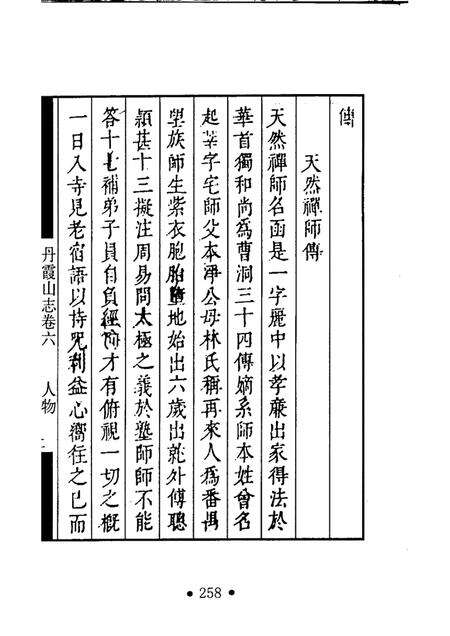 傳
天然禪師傳
天然禪師名函是一字麗中以孝廉出家得法於
華首獨和尚爲曹洞三十四傳嫡系師本姓曾名
起莘字宅師父本淨公母林氏稱再來人爲番禺
望族師生紫衣胞胎墮地始出六歲出就外傳聰
頴甚十三擬注周易問太極之義於塾師師不能
答十七補弟子員自負經濟才有俯視一切之概
一日入寺見老宿語以持咒利益心嚮往之已而
丹霞山志卷六 人物
• 258 •